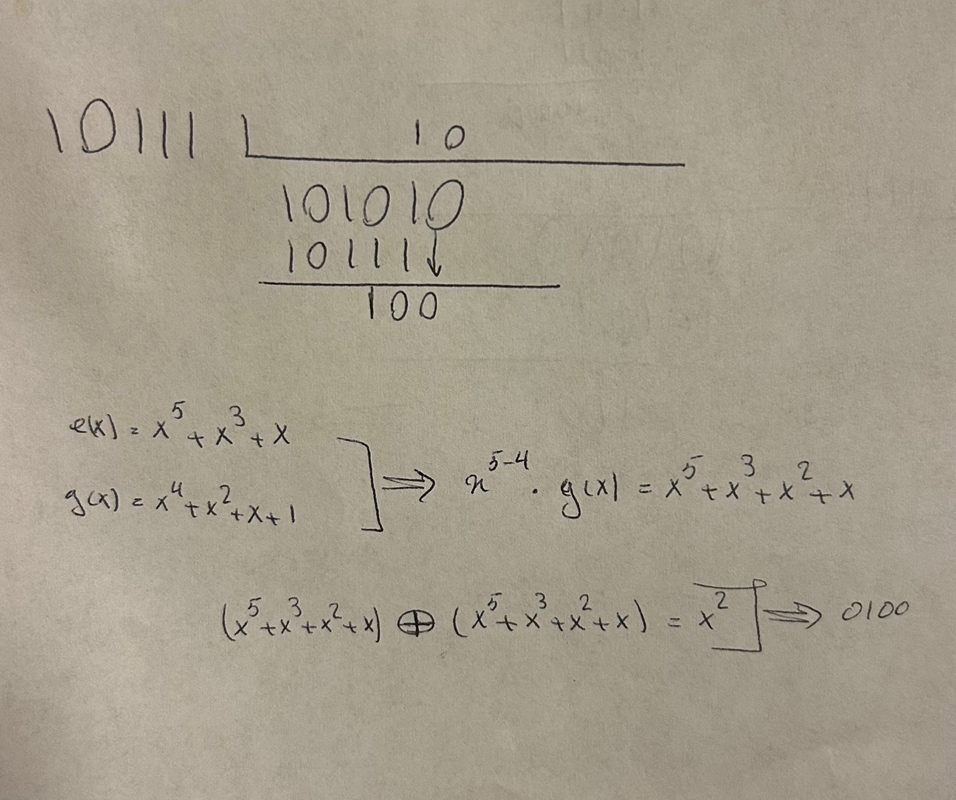 10111 10
101010
10111↓
100
e(x) = x⁵ + x³ + x
g(x) = x⁴ + x² + x + 1
⇒ x⁵⁻⁴ · g(x) = x⁵ + x³ + x² + x
(x⁵ + x³ + x² + x) ⊕ (x⁵ + x³ + x² + x) = x² ⇒ 0100